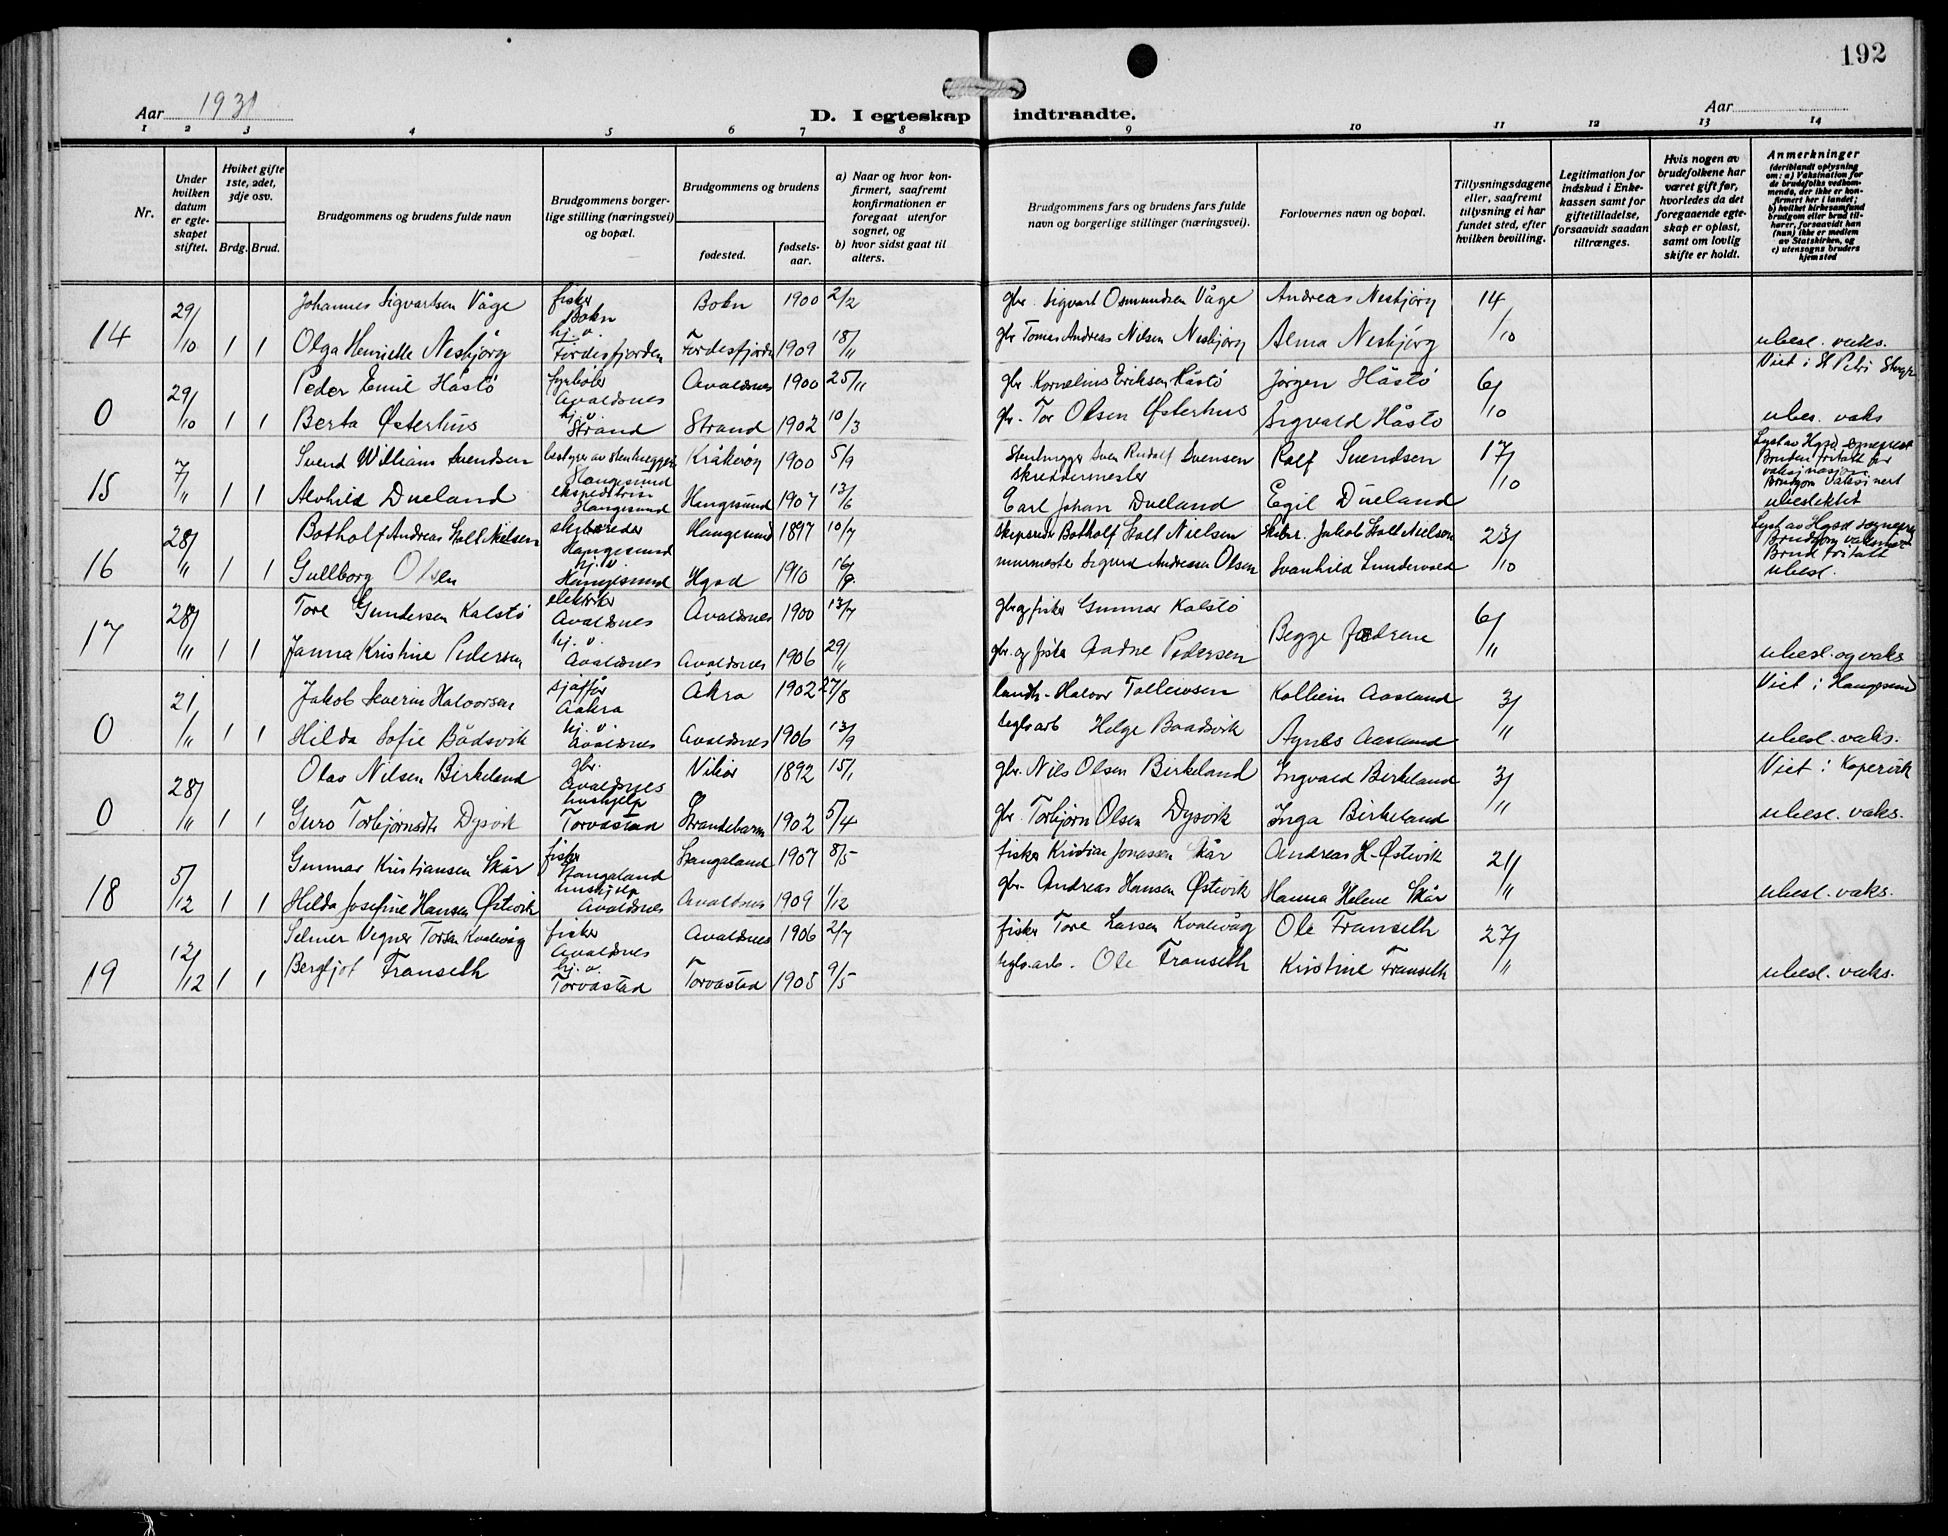 192
Aar 1931
D. I egteskap indtraadte.
Aar
1 2 3 4 5 6 7 8 9 10 11 12 13 14
Nr.
Under hvilken datum er egteskapet stiftet.
Hviket gifte 1ste, 2det, 3dje osv.
Brdg. Brud.
Brudgommens og brudens fulde navn
Brudgommens borgerlige stilling (næringsvei) og bopæl.
Brudgommens og brudens
fødested.
fødselsaar.
a) Naar og hvor konfirmert, saafremt konfirmationen er foregaat utenfor sognet, og
b) hvor sidst gaat til alters.
Brudgommens fars og brudens fars fulde navn og borgerlige stillinger (næringsvei).
Forlovernes navn og bopæl.
Tillysningsdagene eller, saafremt tillysning ei har fundet sted, efter hvilken bevilling.
Legitimation for indskud i Enkekassen samt for giftetilladelse, forsaavidt saadan tiltrænges.
Hvis nogen av brudefolkene har været gift før, hvorledes da det foregaaende egteskap er opløst, samt om lovlig skifte er holdt.
Anmerkninger (deriblandt oplysning om: a) Vaksination for de brudefolks vedkommende, der ikke er konfirmert her i landet; b) hvilket kirkesamfund brudgom eller brud tilhører, forsaavidt han (hun) ikke er medlem av Statskirken, og c) utensogns bruders hjemsted
14 29/10 1 1 Johannes Sigvartsen Våge fisker Bokn Bokn 1900 2/2 gbr. Sigvart Osmundsen Våge Andreas Nesbjørg 14/10
Olga Henriette Nesbjørg hj. v. Førdesfjorden Førdesfjorden 1909 18/11 gbr Tomas Andreas Nilsen Nesbjørg Alma Nesbjørg ubesl. vaks.
0 29/10 1 1 Peder Emil Håstø fyrbøter Avaldsnes Avaldsnes 1900 25/11 gbr Kornelius Eriksen Håstø Jørgen Håstø 6/10 Viet i St Petri
Berta Østerhus hj. v. Strand Strand 1902 10/3 gbr. Tor Olsen Østerhus Sigvald Håstø ubes. vaks
15 7/11 1 1 Svend William Svendsen bestyrer av stenhuggeri Haugesund Kråkerøy 1900 5/9 Stenhugger Sven Rudolf Svensen Rolf Svendsen 17/10 Lyst av Hgsd sogneprest
Alvhild Dueland ekspeditrise Haugesund Haugesund 1907 13/6 skreddermester Carl Johan Dueland Egil Dueland Bruden fritatt for vaksinasjon Brudgom vaksinert ubeslektet
16 28/11 1 1 Botholf Andreas Stolt Nielsen skibsreder Haugesund Haugesund 1897 10/7 skipsreder Botholf Stolt Nielsen Skibsr. Jakob Stolt Nielsen 23/10 Lyst av Hgsd sognepr.
Gullborg Olsen hj. v. Haugesund Hgsd 1910 16/9 murmester Sigurd Andreassen Olsen Svanhild Lundevold Brudgom vaksinert Brud fritatt ubesl.
17 28/11 1 1 Tore Gundersen Kalstø elektriker Avaldsnes Avaldsnes 1900 13/7 gbr og fisker Gunnar Kalstø Begge fædrene 6/11
Janna Kristine Pedersen hj. v. Avaldsnes Avaldsnes 1906 29/11 gbr. og fisker Aadne Pedersen ubesl. og vaks
0 21/11 1 1 Jakob Severin Halvorsen sjåffør Aakra Åkra 1902 27/8 landh. Halvor Tollevsen Kolbein Aasland 3/11 Viet i Haugesund
Hilda Sofie Bådsvik hj. v. Avaldsnes Avaldsnes 1906 13/9 teglv.arb Helge Baadsvik Agnes Aasland ubesl. vaks.
0 28/11 1 1 Olav Nilsen Birkeland gbr. Avaldsnes Vikør 1892 15/1 gbr. Nils Olsen Birkeland Ingvald Birkeland 3/11 Viet i Kopervik
Guro Torbjørnsdtr Dysvik hushjelp Torvastad Strandebarm 1902 5/4 gbr. Torbjørn Olsen Dysvik Inga Birkeland ubesl. vaks.
18 5/12 1 1 Gunnar Kristiansen Skår fisker Stangaland Stangaland 1907 8/5 fisker Kristian Jonassen Skår Andreas H. Østevik 21/11
Hilda Josefine Hansen Østevik hushjelp Avaldsnes Avaldsnes 1909 1/12 gbr. Andreas Hansen Østevik Hanna Helene Skår ubesl. vaks.
19 12/12 1 1 Selmer Vegner Torsen Kvalevåg fisker Avaldsnes Avaldsnes 1906 2/7 fisker Tore Larsen Kvalevåg Ole Franseth 27/11
Bergljot Franseth hj. v. Torvastad Torvastad 1905 9/5 teglv.arb. Ole Franseth Kristine Franseth ubesl. vaks.